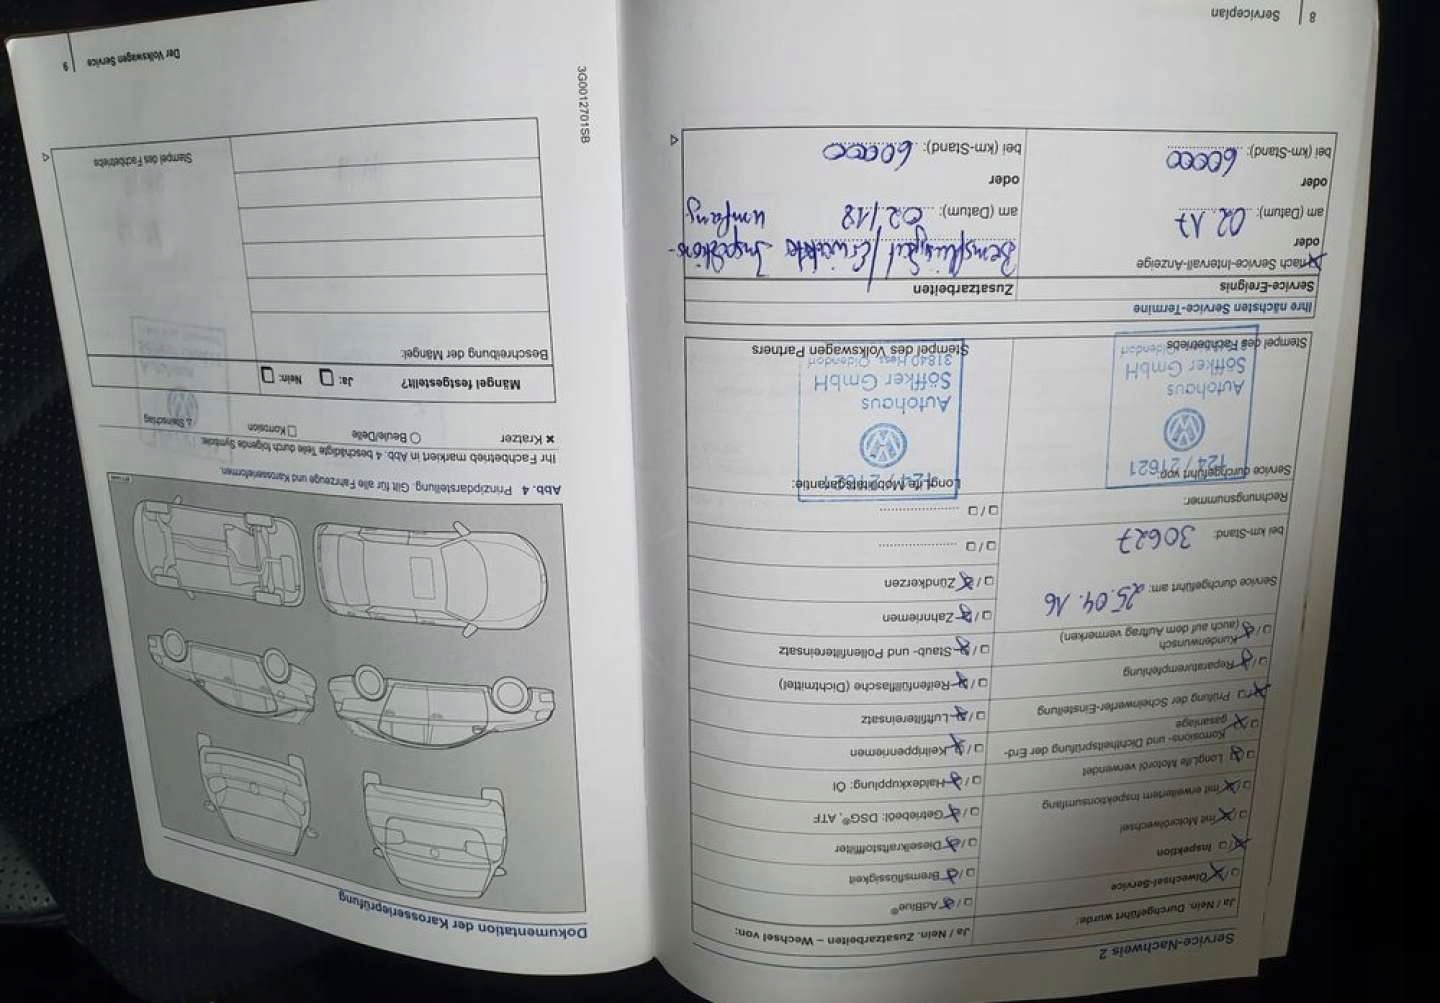 Service-Nachweis 2
Ja / Nein. Durchgeführt wurde:
Ölwechsel-Service
Inspektion
mit Motorölwechsel
mit erweitertem Inspektionsumfang
LongLife Motoröl verwendet
Korrosions- und Dichtheitsprüfung der Erd-
gasanlage
Prüfung der Scheinwerfer-Einstellung
Reparaturempfehlung
Kundenwunsch
(auch auf dem Auftrag vermerken)
Service durchgeführt am: 25.04.16
bei km-Stand: 30627
Rechnungsnummer:
Service durchgeführt von:
124 / 21621
Autohaus
Söffker GmbH
Stempel des Fachbetriebs
Ja / Nein. Zusatzarbeiten – Wechsel von:
AdBlue®
Bremsflüssigkeit
Dieselkraftstofffilter
Getriebeöl: DSG®, ATF
Haldexkupplung: Öl
Keilrippenriemen
Luftfiltereinsatz
Reifenfüllflasche (Dichtmittel)
Staub- und Pollenfiltereinsatz
Zahnriemen
Zündkerzen
LongLife Mobilitätsgarantie:
Autohaus
Söffker GmbH
31840 Hess. Oldendorf
Stempel des Volkswagen Partners
Ihre nächsten Service-Termine
Service-Ereignis
Zusatzarbeiten
nach Service-Intervall-Anzeige
oder
am (Datum): 02.17
oder
bei (km-Stand): 60000
Bremsflüssigkeit / Erweiterte Inspektions-
umfang
am (Datum): 02/18
oder
bei (km-Stand): 60000
8 Serviceplan
Dokumentation der Karosserieprüfung
Abb. 4 Prinzipdarstellung. Gilt für alle Fahrzeuge und Karosserieformen.
Ihr Fachbetrieb markiert in Abb. 4 beschädigte Teile durch folgende Symbole:
Kratzer
Beule/Delle
Korrosion
Steinschlag
Mängel festgestellt? Ja: Nein:
Beschreibung der Mängel:
Stempel des Fachbetriebs
3G0012701SB
Der Volkswagen Service 9